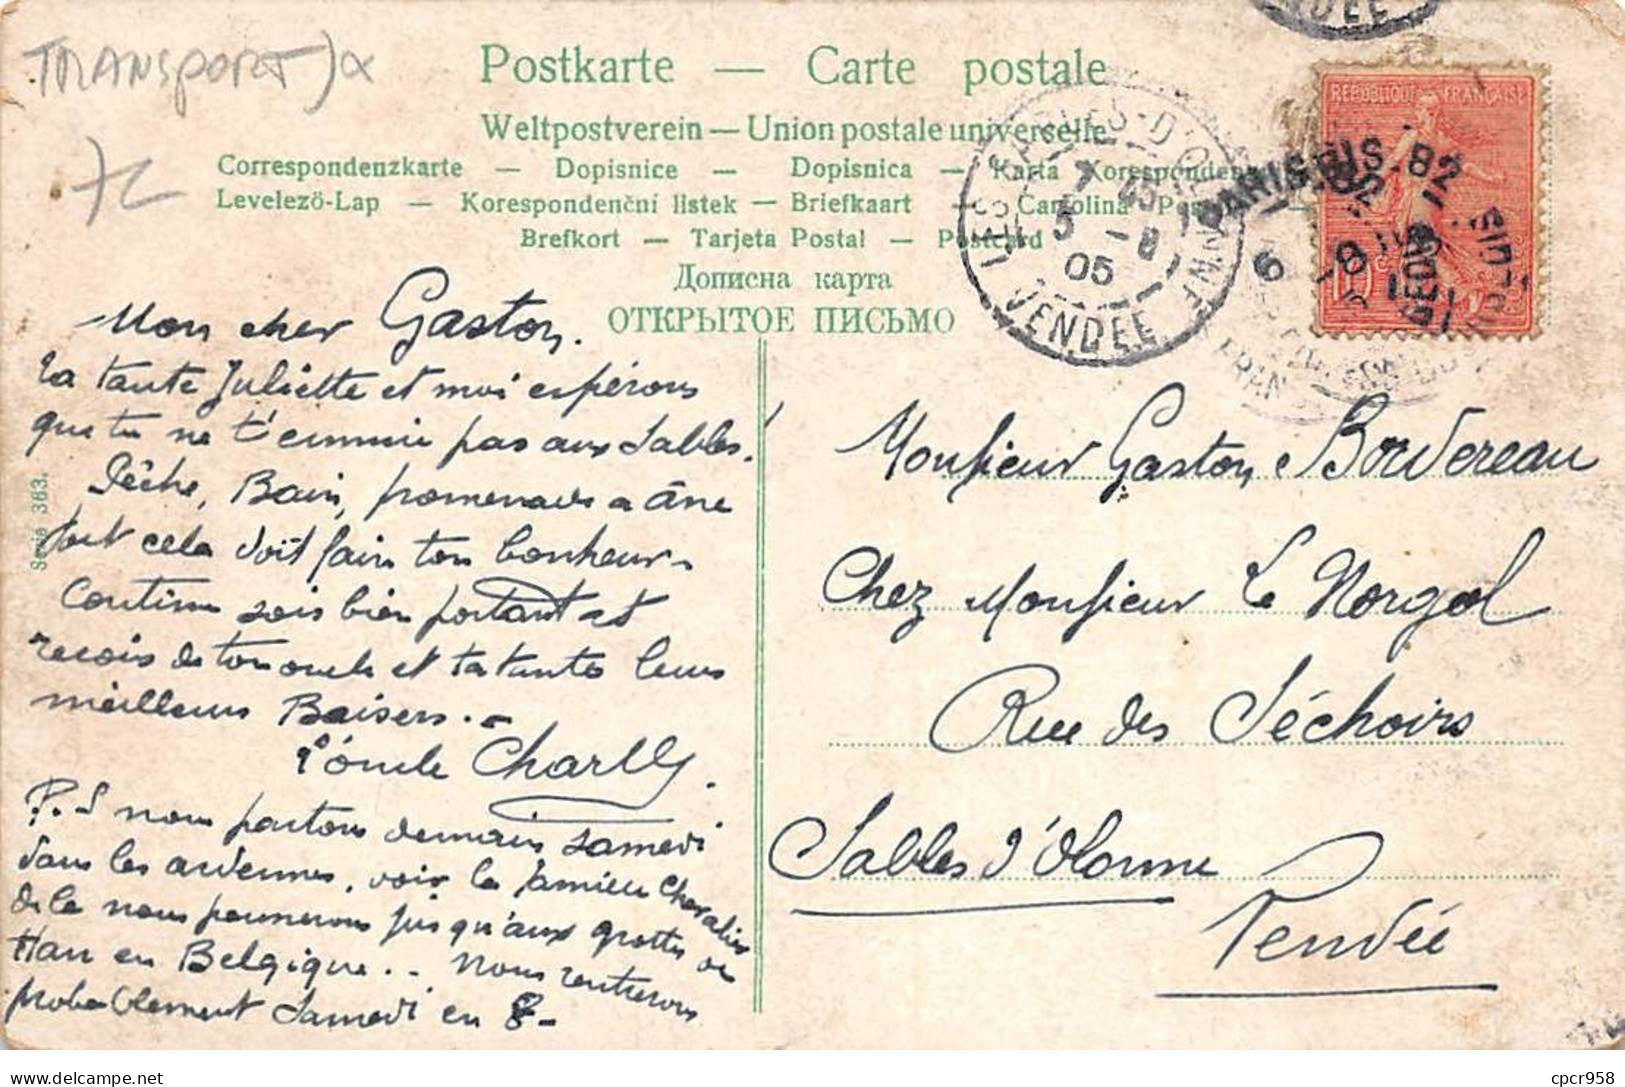 TRANSPORT)
Postkarte — Carte postale
Weltpostverein — Union postale universelle
Correspondenzkarte — Dopisnice — Dopisnica — Karta Korespond
Levelezö-Lap — Korespondenční listek — Briefkaart — Cartolina Pos
Brefkort — Tarjeta Postal — Postcard
Дописна карта
ОТКРЫТОЕ ПИСЬМО
LES SABLES-D'OLONNE
5 - 8
05
VENDÉE
REPUBLIQUE FRANÇAISE
PARIS
Serie 363.
Mon cher Gaston.
Ta tante Juliette et moi espérons
que tu ne t'ennuie pas aux Sables.
Pêche, Bain, promenades a âne
tout cela doit fair ton bonheur.
Continu sois bien portant et
recois de ton oncle et ta tante leurs
meilleurs Baisers.-
l'óncle Charlly.
P.S nous partons demain samedi
dans les ardennes, voir la famille Chevalier
de la nous pousserons jusqu'aux grottes de
Han en Belgique.. Nous rentrerons
probablement Samedi en 8-
Monsieur Gaston Bordereau
Chez Monsieur Le Norgol
Rue des Séchoirs
Sables d'Olonne
Vendée
cpcr958